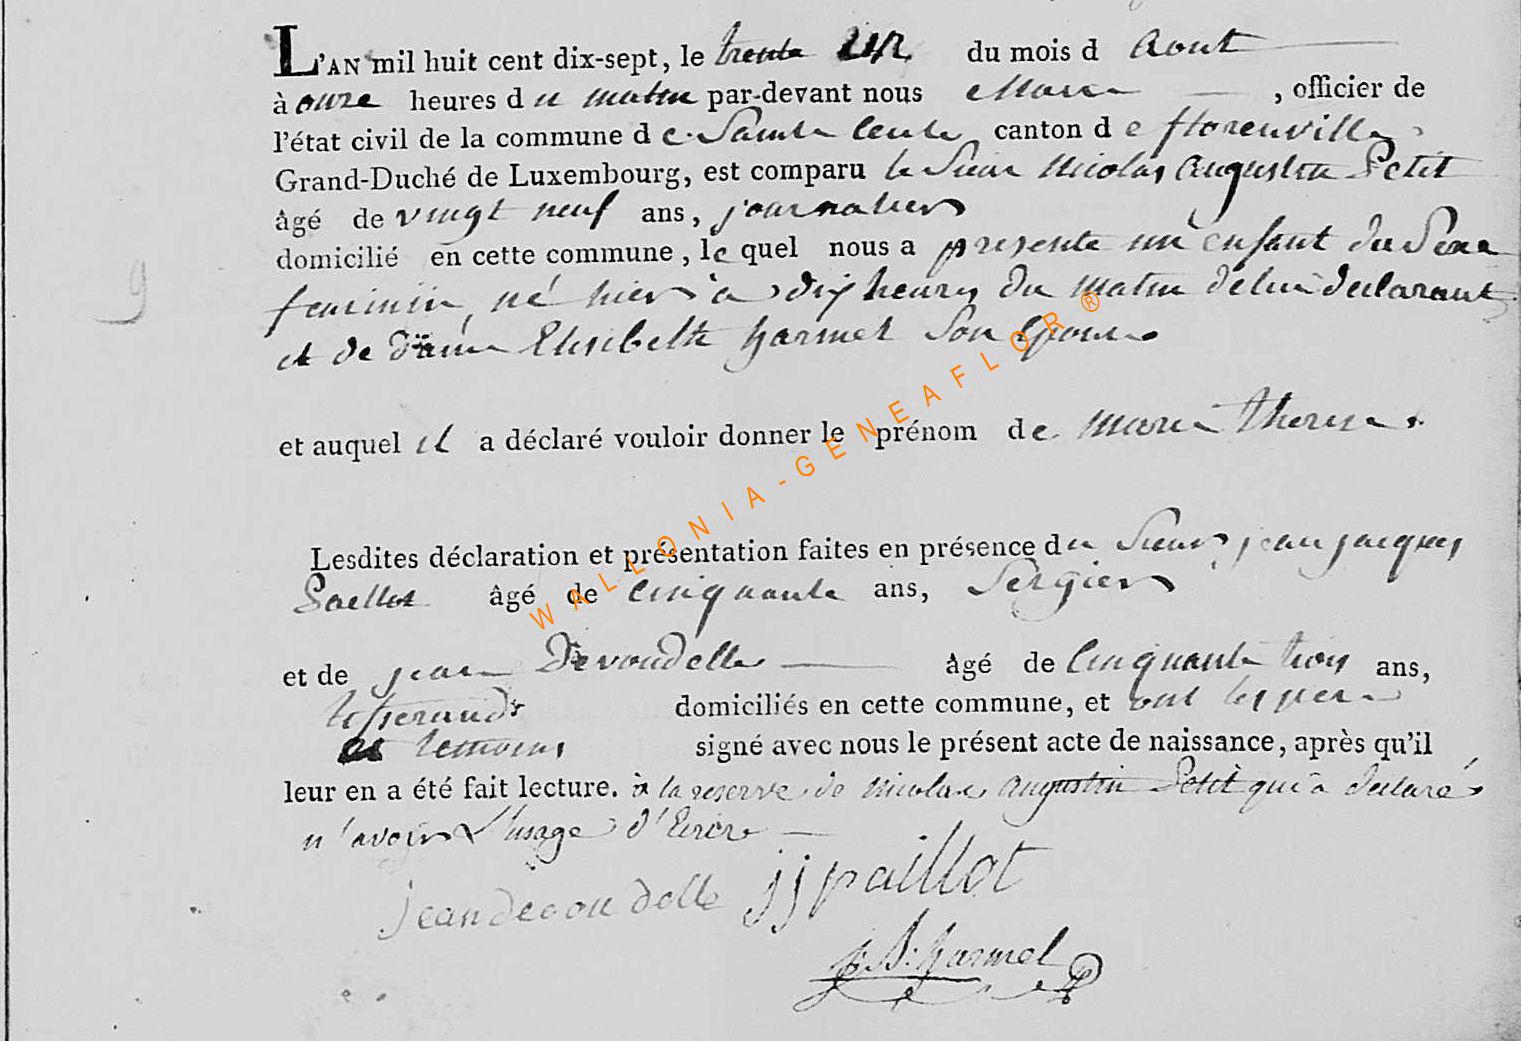 L'AN mil huit cent dix-sept, le trente un du mois d Aout
à onze heures d u matin par-devant nous Maire , officier de
l'état civil de la commune d e Sainte Cecile canton d e florenville
Grand-Duché de Luxembourg, est comparu le Sieur Nicolas Augustin Petit
âgé de vingt neuf ans, journalier
domicilié en cette commune, le quel nous a presenté un enfant du Sexe
feminin, né hier à dix heures du matin de lui declarant
et de dame Elisibelth harmel Son Epouse
9
et auquel il a déclaré vouloir donner le prénom de Marie Therese
Lesdites déclaration et présentation faites en présence du Sieur jean jacques
Paillot âgé de cinquante ans, Sergier
et de jean Devoudelle âgé de cinquante trois ans,
tisserand domiciliés en cette commune, et ont les pere
et temoins signé avec nous le présent acte de naissance, après qu'il
leur en a été fait lecture. à la reserve de Nicolas Augustin Petit qui a declaré
n'avoir L'usage d'Ecrire
jean devoudelle jj paillot
harmel
WALLONIA-GENEAFLOR®